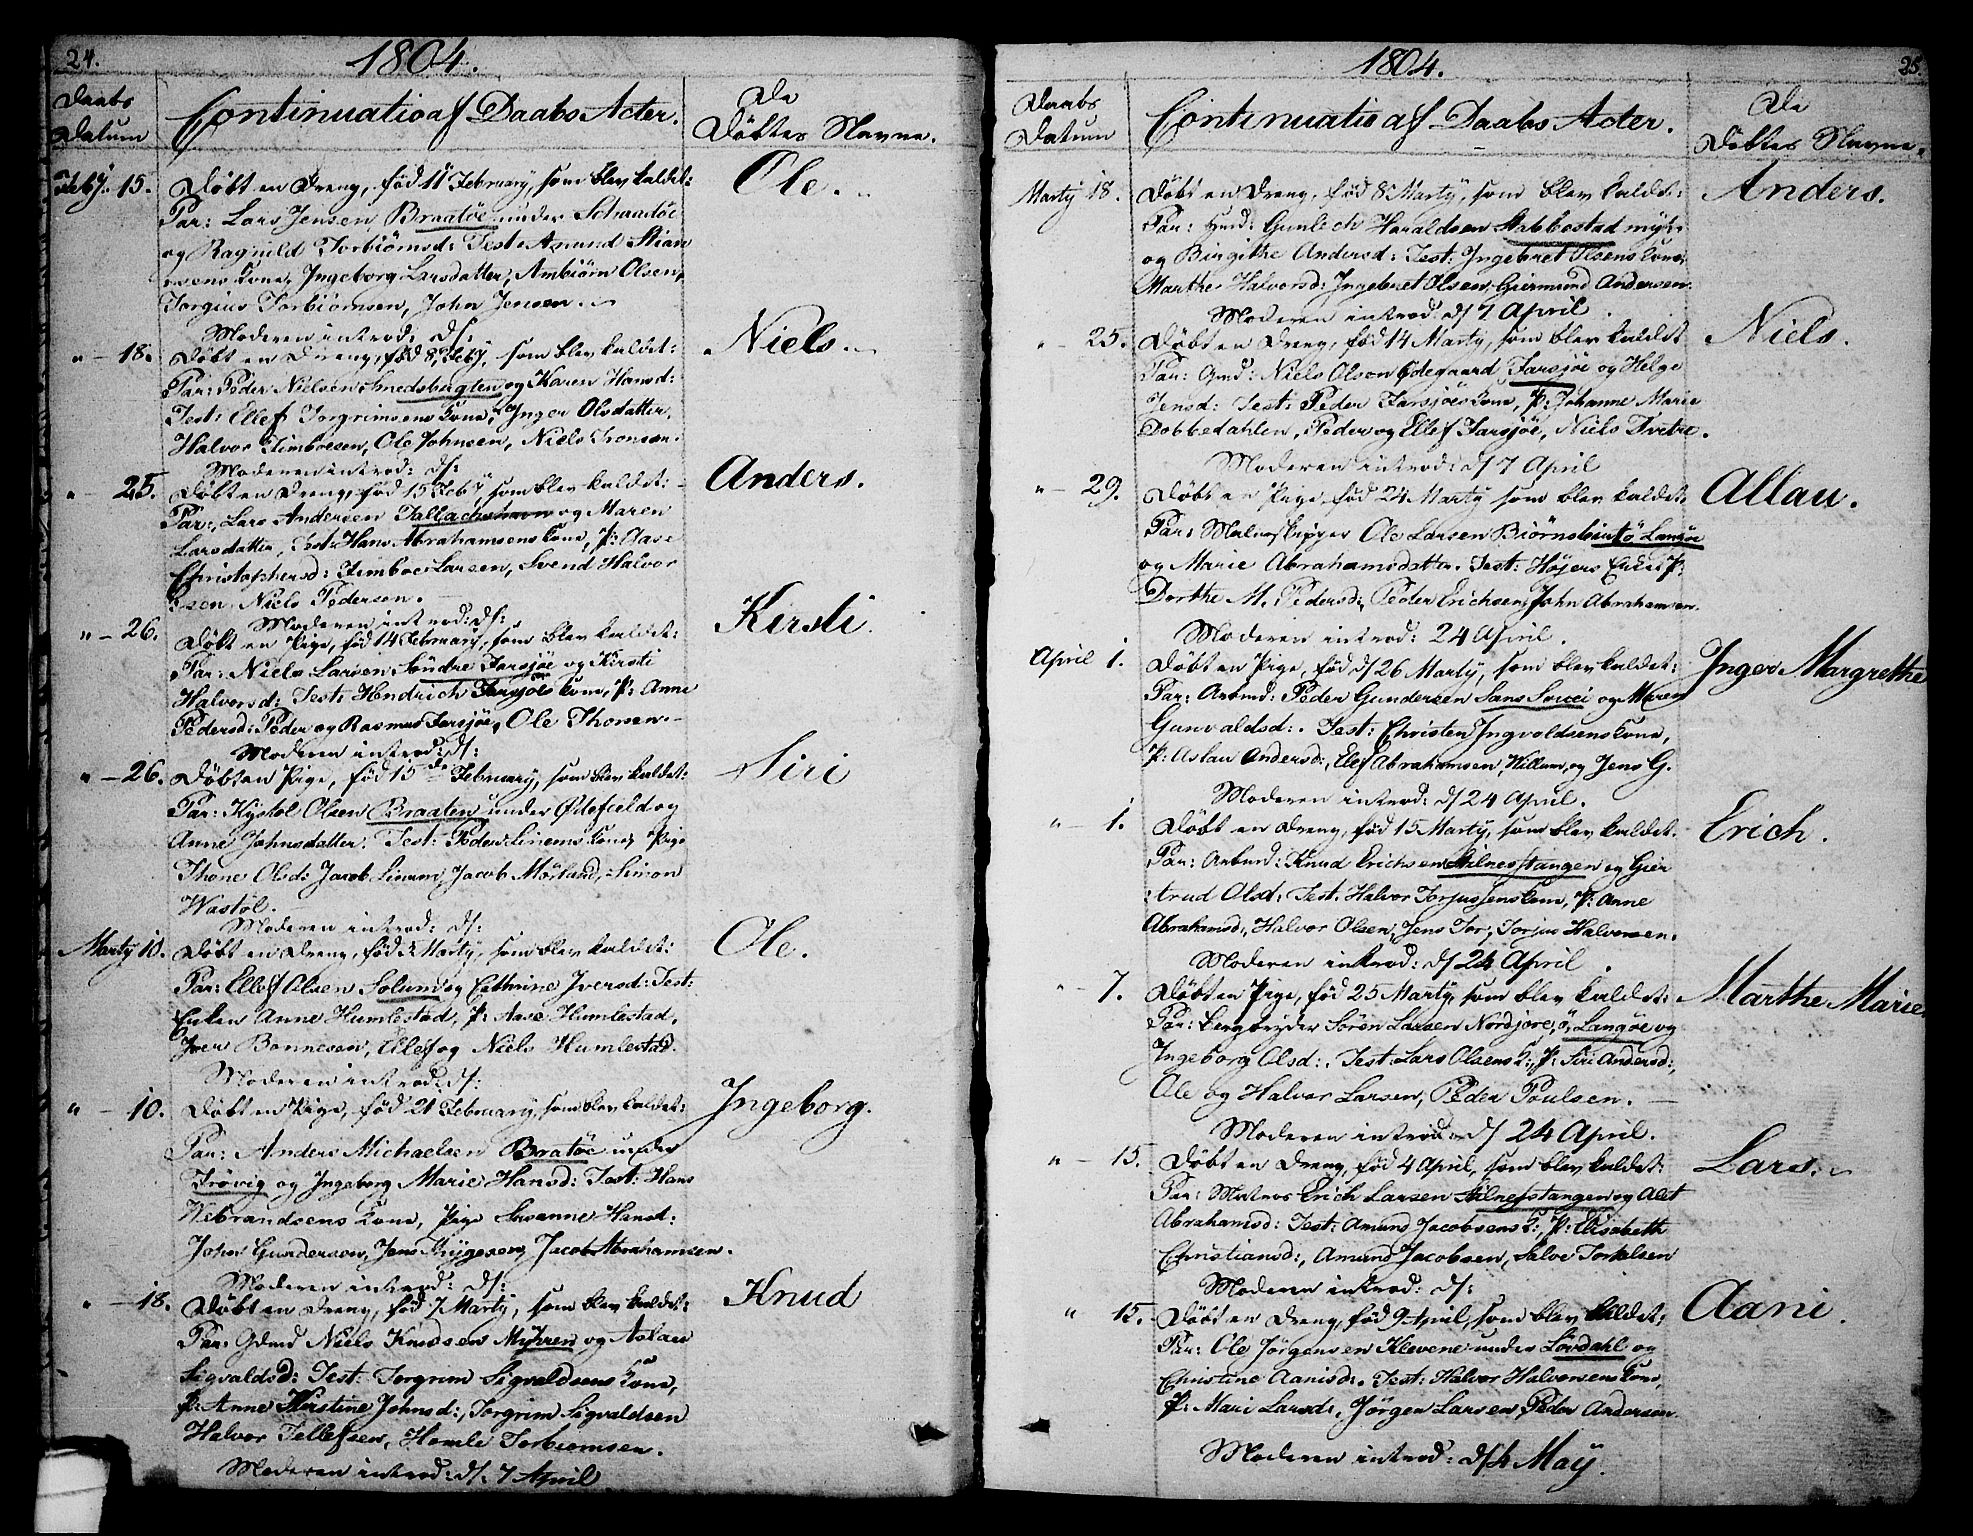 24.
1804.
Daabs Datum
Continuatio af Daabs Acter.
De Döbtes Navne.
Feby. 15.
Döbt en Dreng, föd 11 February, som blev kaldet:
Ole.
Par: Lars Jensen Braatöe under Schaatöe
og Ragnild Torbiörnsd: Test: Amund Stian
sens Kone, Ingeborg Larsdatter, Ambiörn Olsen,
Torgius Torbiörnsen, John Jensen.
Moderen introd: ds:
" – 18.
Döbt en Dreng, föd 8 Feby, som blev kaldet:
Niels.
Par: Peder Nielsen Smedsbugten og Karen Hansd:
Test: Ellef Torgrimsens Kone, Inger Olsdatter,
Halvor Simonsen, Ole Johnsen, Niels Tronsen.
Moderen introd: ds:
" – 25.
Döbt en Dreng, föd 15 Feby, som blev kaldet:
Anders.
Par: Lars Andersen Tallachshavn og Maren
Larsdatter, Test: Hans Abrahamsens Kone, P: Aase
Christophersd: Larsen, Svend Halvor
sen, Niels Pedersen.
Moderen introd: ds:
" – 26.
Döbt en Pige, föd 14 February, som blev kaldet:
Kirsti.
Par: Niels Larsen Söndre Farsjöe og Kirsti
Halvorsd: Test: Hendrich Farsjöes Kone, P: Anne
Pedersd: Peder og Rasmus Farsjöe, Ole Thonen.
Moderen introd: ds:
" – 26.
Döbt en Pige, föd 15de February, som blev kaldet:
Siri
Par: Kystol Olsen Braaten under Ödefield og
Anne Johnsdatter. Test: Peder Linems Kone, Pige
Thone Olsd: Jacob Linum, Jacob Mörland, Simon
Wastöl.
Moderen introd: ds:
Marty 10.
Döbt en Dreng, föd 3 Marty, som blev kaldet:
Ole.
Par: Ellef Olsen Solum og Cathrine Iversd: Test:
Enken Anne Humlestad, P: Aase Humlestad,
Iver Bonnesen, Ellef og Niels Humlestad.
Moderen introd: ds:
" – 10.
Döbt en Pige, föd 21 February, som blev kaldet:
Ingeborg.
Par: Anders Michaelsen Bratöe under
Trövig og Ingeborg Marie Hansd: Test: Hans
Webrandsens Kone, Pige Susanne Hansd:
John Gundersen, Jens Thygesen, Jacob Abrahamsen.
Moderen introd: ds:
" – 18.
Döbt en Dreng, föd 7 Marty, som blev kaldet:
Knud
Par: Gdmd Niels Knudsen Myhren og Aslau
Sigvaldsd: Test: Torgrim Sigvaldsens Kone,
P: Anne Kirstine Johnsd:, Torgrim Sigvaldsen
Halvor Tellefsen, Homle Torbiörnsen.
Moderen introd: ds: 7 April
25.
1804.
Daabs Datum
Continuatio af Daabs Acter.
De Döbtes Navne.
Marty 18.
Döbt en Dreng, föd 8 Marty, som blev kaldet:
Anders.
Par: Gunlech Haraldsen Stabbestad myr:
og Birgithe Andersd: Test: Ingebret Olsens Kone,
Marthe Halvorsd: Ingebret Olsen, Giermund Andersen.
Moderen introd: ds 7 April.
" – 25.
Döbt en Dreng, föd 14 Marty, som blev kaldet
Niels.
Par: Gmd: Niels Olsen Ödegaard Farsjöe og Helge
Jensd: Test: Peder Farsjöes Kone, P: Johanne Marie
Dobbedahlen, Peder og Ellef Farsjöe, Niels Tvetre.
Moderen introd: ds 7 April
" – 29.
Döbt en Pige, föd 24 Marty, som blev kaldet,
Allau.
Par: Ole Larsen Biörnsbuetö Langöe
og Marie Abrahamsdatter. Test: Höjers Enke, P:
Dorthe M. Pedersd:, Peder Erichsen, John Abrahamsen.
Moderen introd: 24 April.
April 1.
Döbt en Pige, föd ds 26 Marty, som blev kaldet:
Inger Margrethe
Par: Arbmd: Peder Gundersen Sans Souci og Maren
Gunvaldsd:. Test: Christen Ingvaldsens Kone,
P: Aslau Andersd:, Elef Abrahamsen, Willum, og Jens G.
Moderen introd: ds 24 April.
" – 1.
Döbt en Dreng, föd 15 Marty, som blev kaldet.
Erich.
Par: Arbmd: Knud Erichsen Stilnesstangen og Gier
trud Olsd: Test: Halvor Torjussens Kone, P: Anne
Abrahamsd:, Halvor Olsen, Jens Tor, Torjus Halvorsen.
Moderen introd: ds 24 April.
" – 7.
Döbt en Pige, föd 25 Marty, som blev kaldet:
Marthe Marie
Par: Bergbryder Sören Larsen Nordjore, ö, Langöe og
Ingeborg Olsd:. Test: Lars Olsens K:, P: Siri Andersd:,
Ole og Halvor Larsen, Peder Poulsen.
Moderen introd: ds 24 April.
" – 15.
Döbt en Dreng, föd 4 April, som blev kaldet:
Lars.
Par: Matros Erich Larsen Stilnesstangen og Alet
Abrahamsd: Test: Amund Jacobsens K:, P: Elisabeth
Christiansd:, Amund Jacobsen, Salve Torkelsen
Moderen introd: ds:
" 15.
Döbt en Dreng, föd 9 April, som blev kaldet:
Aani.
Par: Ole Jörgensen Klevene under Lövdahl og
Christine Aanisd:. Test: Halvor Halvorsens Kone,
P: Mari Larsd:, Jörgen Larsen, Peder Andersen.
Moderen introd: ds 4 May.